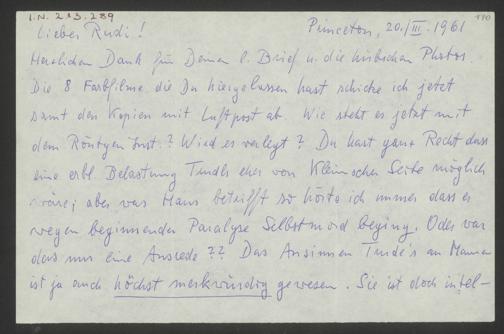 I.N. 213.289
190
Princeton, 20./III. 1961
Lieber Rudi!
Herzlichen Dank für Deinen l. Brief u. die hübschen Photos.
Die 8 Farbfilme die Du hiergelassen hast schicke ich jetzt
samt den Kopien mit Luftpost ab. Wie steht es jetzt mit
dem Röntgen Inst.? Wird es verlegt? Du hast ganz Recht dass
eine erbl. Belastung Trude's eher von Kleinscher Seite möglich
wäre; aber was Hans betrifft so hörte ich immer dass er
wegen beginnender Paralyse Selbstmord beging. Oder war
das nur eine Ausrede?? Das Ansinnen Trude's an Mama
ist ja auch höchst merkwürdig gewesen. Sie ist doch intel-